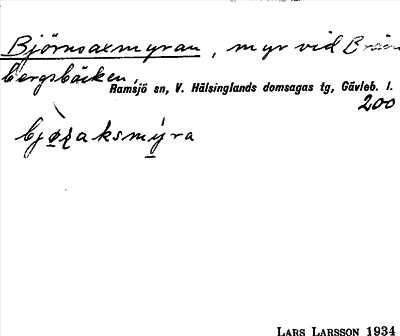 Björnoaxmyran, myr vid Brän
bergsbäcken,
Ramsjö sn, V. Hälsinglands domsagas tg, Gävleb. l.
200
bjø̀ʀ̣aksmýra
LARS LARSSON 1934